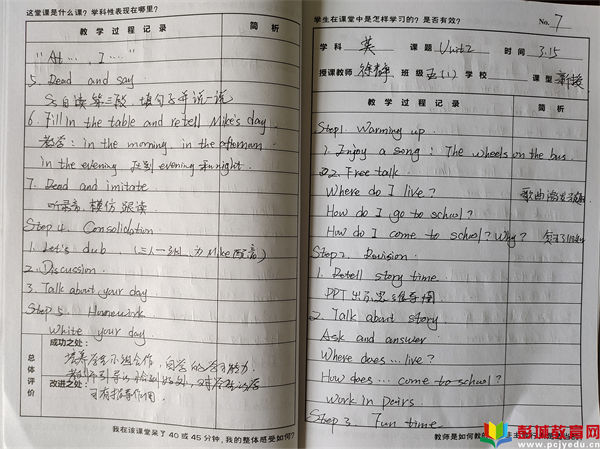 这堂课是什么课?学科性表现在哪里?
教 学 过 程 记 录
简 析
"At ..., I ..."
5. Read and say
Ss自读第三段,填句子并说一说
6. Fill in the table and retell Mike's day.
教学: in the morning, in the afternoon
in the evening 区别 evening 和 night.
7. Read and imitate
听录音 模仿 跟读
Step 4. Consolidation
1. Let's dub (三人一组,为Mike配音)
2. Discussion.
3. Talk about your day
Step 5. Homework
Write your day
总体评价
成功之处:
培养学生小组合作,自学的学习能力.
改进之处:
我在该课堂呆了 40 或 45 分钟,我的整体感受如何?
学生在课堂中是怎样学习的?是否有效?
No. 7
学 科 英 课 题 Unit2 时 间 3.15
授课教师 班 级 五(1) 学校 课 型 新授
教 学 过 程 记 录
简 析
Step1. Warming up.
1. Enjoy a song: The wheels on the bus.
2. Free talk.
Where do I live?
歌曲
How do I go to school?
How do I come to school? Why?
Step2. Revision
1. Retell story time.
PPT 出示思维导图
2. Talk about story
Ask and answer
Where does ... live?
How does ... come to school?
Work in pairs
Step 3. Fun time
教师是如何教的
彭城教育网
www.pcjyedu.cn